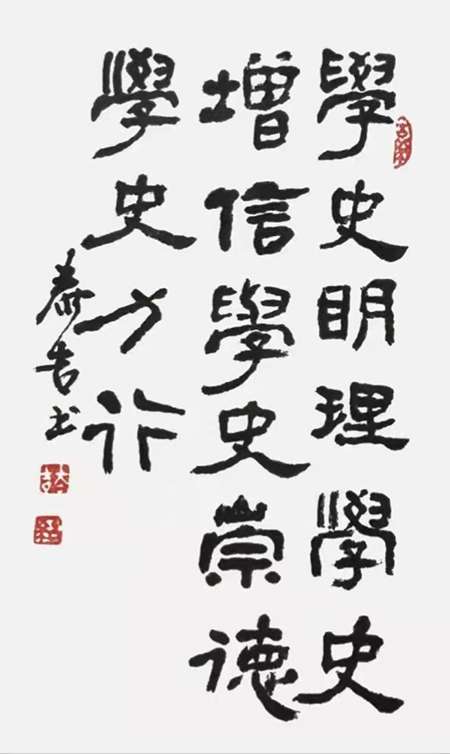 學史明理學史
增信學史崇德
學史力行
泰吉书